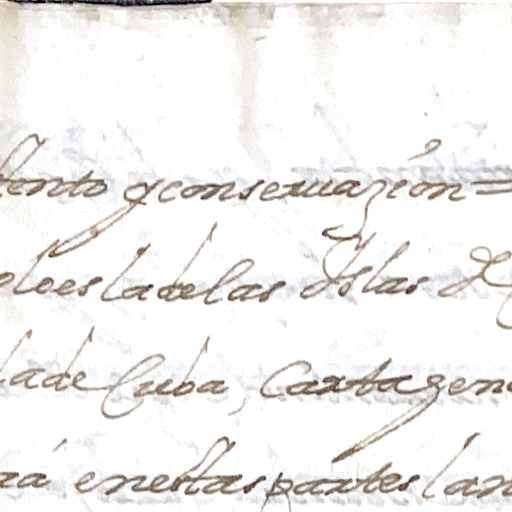 tento y conseruazion=
olo es la de las Yslas de
la de Cuba, Cartagena
rá en estas partes la n